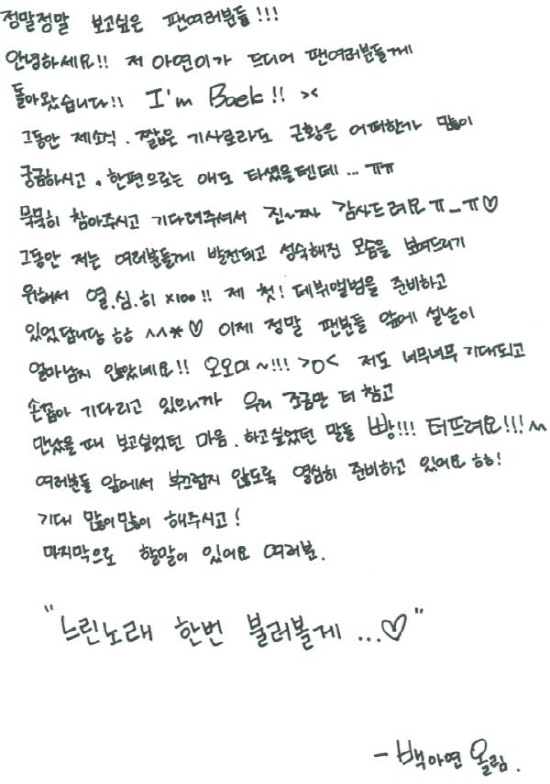 정말정말 보고싶은 팬여러분들!!!
안녕하세요!! 저 아연이가 드디어 팬여러분들께
돌아왔습니다!! I'm Baek!! ><
그동안 제소식. 짧은 기사로라도 근황은 어떠한가 많이
궁금하시고, 한편으로는 애도 타셨을텐데... ㅠㅠ
묵묵히 참아주시고 기다려주셔서 진~짜 감사드려요 ㅠ_ㅠ♡
그동안 저는 여러분들께 발전되고 성숙해진 모습을 보여드리기
위해서 열.심.히 x100!! 제 첫! 데뷔앨범을 준비하고
있었답니당 ㅎㅎ ^^*♡ 이제 정말 팬분들 앞에 설날이
얼마남지 않았네요!! 오오미~!!! >0< 저도 너무너무 기대되고
손꼽아 기다리고 있으니까 우리 조금만 더 참고
만났을때 보고싶었던 마음. 하고싶었던 말들 빵!!! 터뜨려요!!!^^
여러분들 앞에서 부끄럽지 않도록 열심히 준비하고 있어요 ㅎㅎ!
기대 많이많이 해주시고!
마지막으로 할말이 있어요 여러분.
"느린노래 한번 불러볼게 ...♡"
- 백아연 올림.